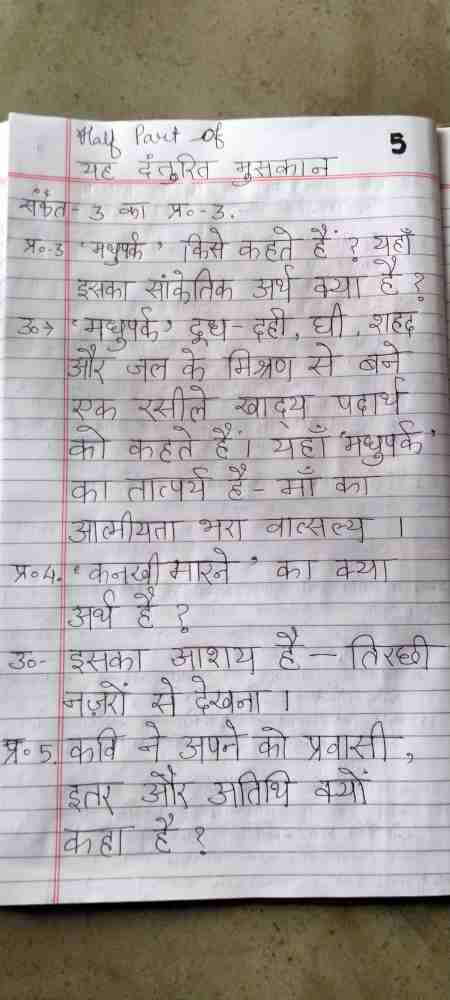 Half Part of
5
यह दंतुरित मुसकान
संकेत - 3 का प्र०-3.
प्र०-3 'मधुपर्क' किसे कहते हैं ? यहाँ
इसका सांकेतिक अर्थ क्या है ?
उ०→ 'मधुपर्क' दूध-दही, घी, शहद
और जल के मिश्रण से बने
एक रसीले खाद्य पदार्थ
को कहते हैं। यहाँ 'मधुपर्क'
का तात्पर्य है - माँ का
आत्मीयता भरा वात्सल्य ।
प्र०4. 'कनखी मारने' का क्या
अर्थ है ?
उ०- इसका आशय है - तिरछी
नज़रों से देखना ।
प्र०5. कवि ने अपने को प्रवासी,
इतर और अतिथि क्यों
कहा है ?